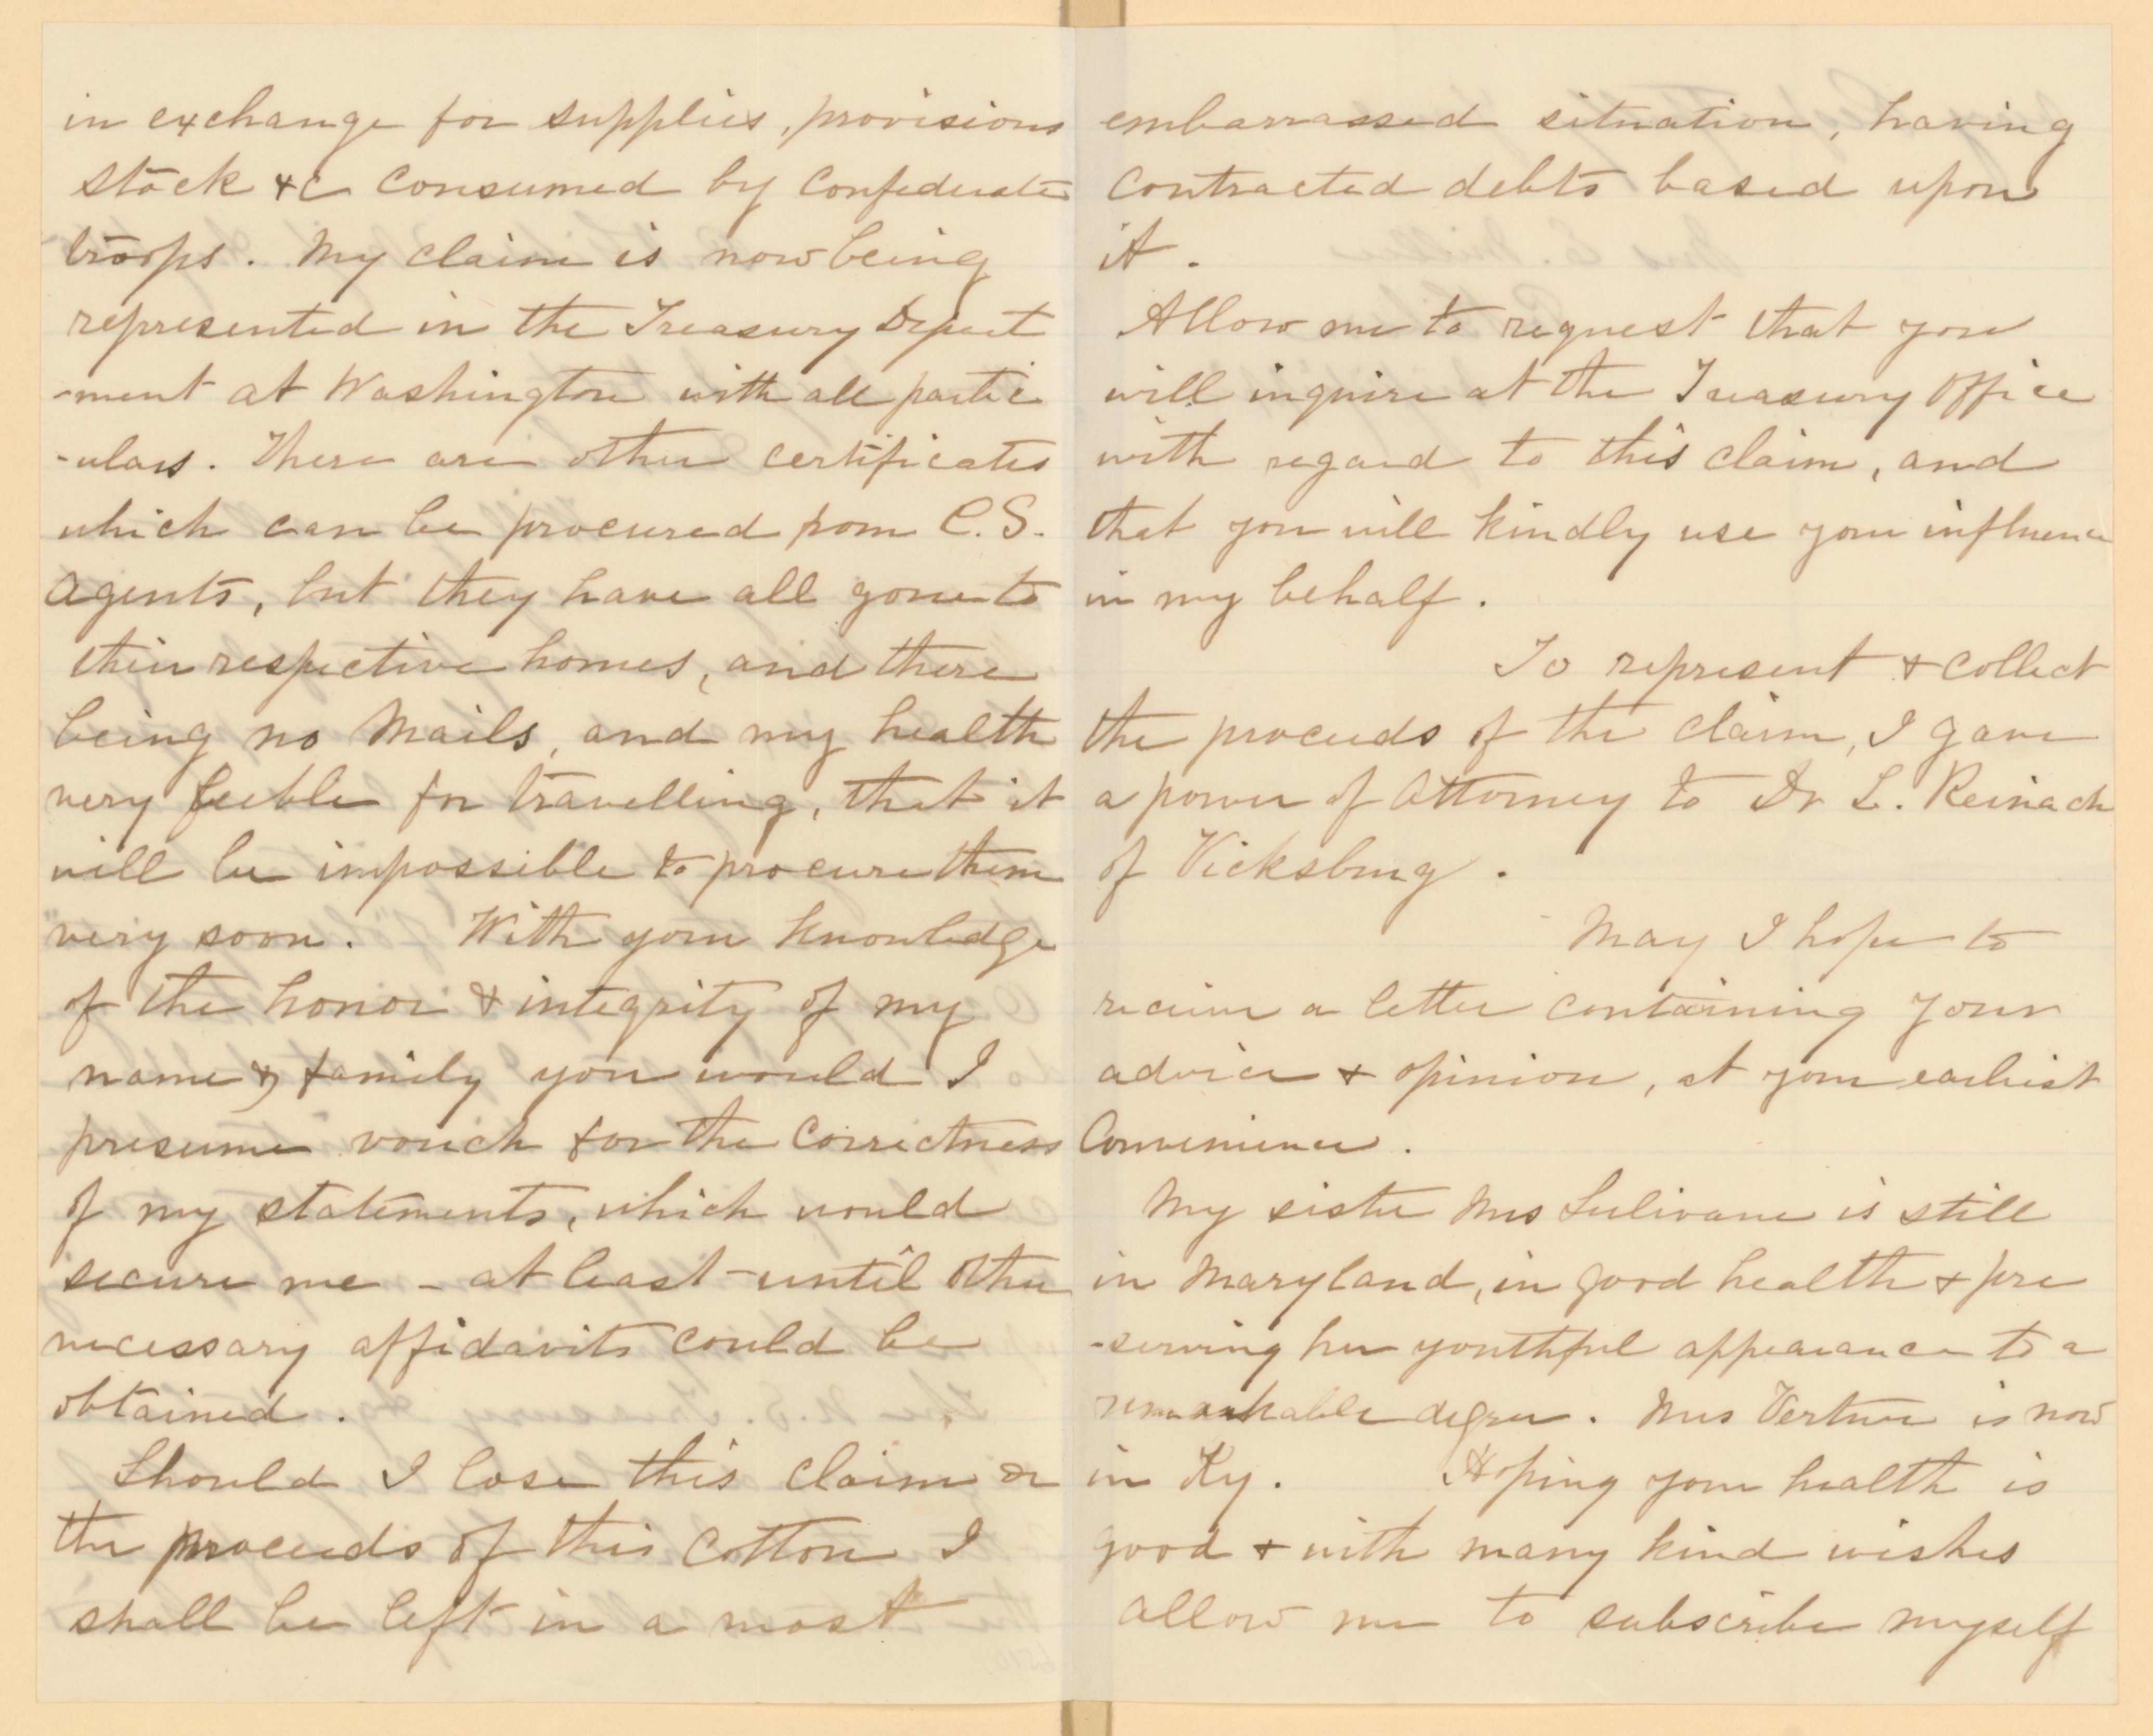 in exchange for supplies, provisions
stock &c consumed by Confederate
troops. My claim is now being
represented in the Treasury Depart
-ment at Washington with all partic
-ulars. There are other certificates
which can be procured from C.S.
Agents, but they have all gone to
their respective homes, and there
being no Mails, and my health
very feeble for travelling, that it
will be impossible to procure them
very soon. With your knowledge
of the honor & integrity of my
name & family you would I
presume vouch for the correctness
of my statements, which would
secure me - at least - until other
necessary affidavits could be
obtained.
Should I lose this claim or
the proceeds of this Cotton I
shall be left in a most
embarrassed situation, having
contracted debts based upon
it.
Allow me to request that you
will inquire at the Treasury Office
with regard to this claim, and
that you will kindly use your influence
in my behalf.
To represent & collect
the proceeds of the claim, I gave
a power of Attorney to Dr L. Reinach
of Vicksburg.
May I hope to
receive a letter containing your
advice & opinion, at your earliest
Convenience.
My sister Mrs Sulivane is still
in Maryland, in good health & pre
-serving her youthful appearance to a
remarkable degree. Mrs Vertner is now
in Ky. Hoping your health is
good & with many kind wishes
allow me to subscribe myself